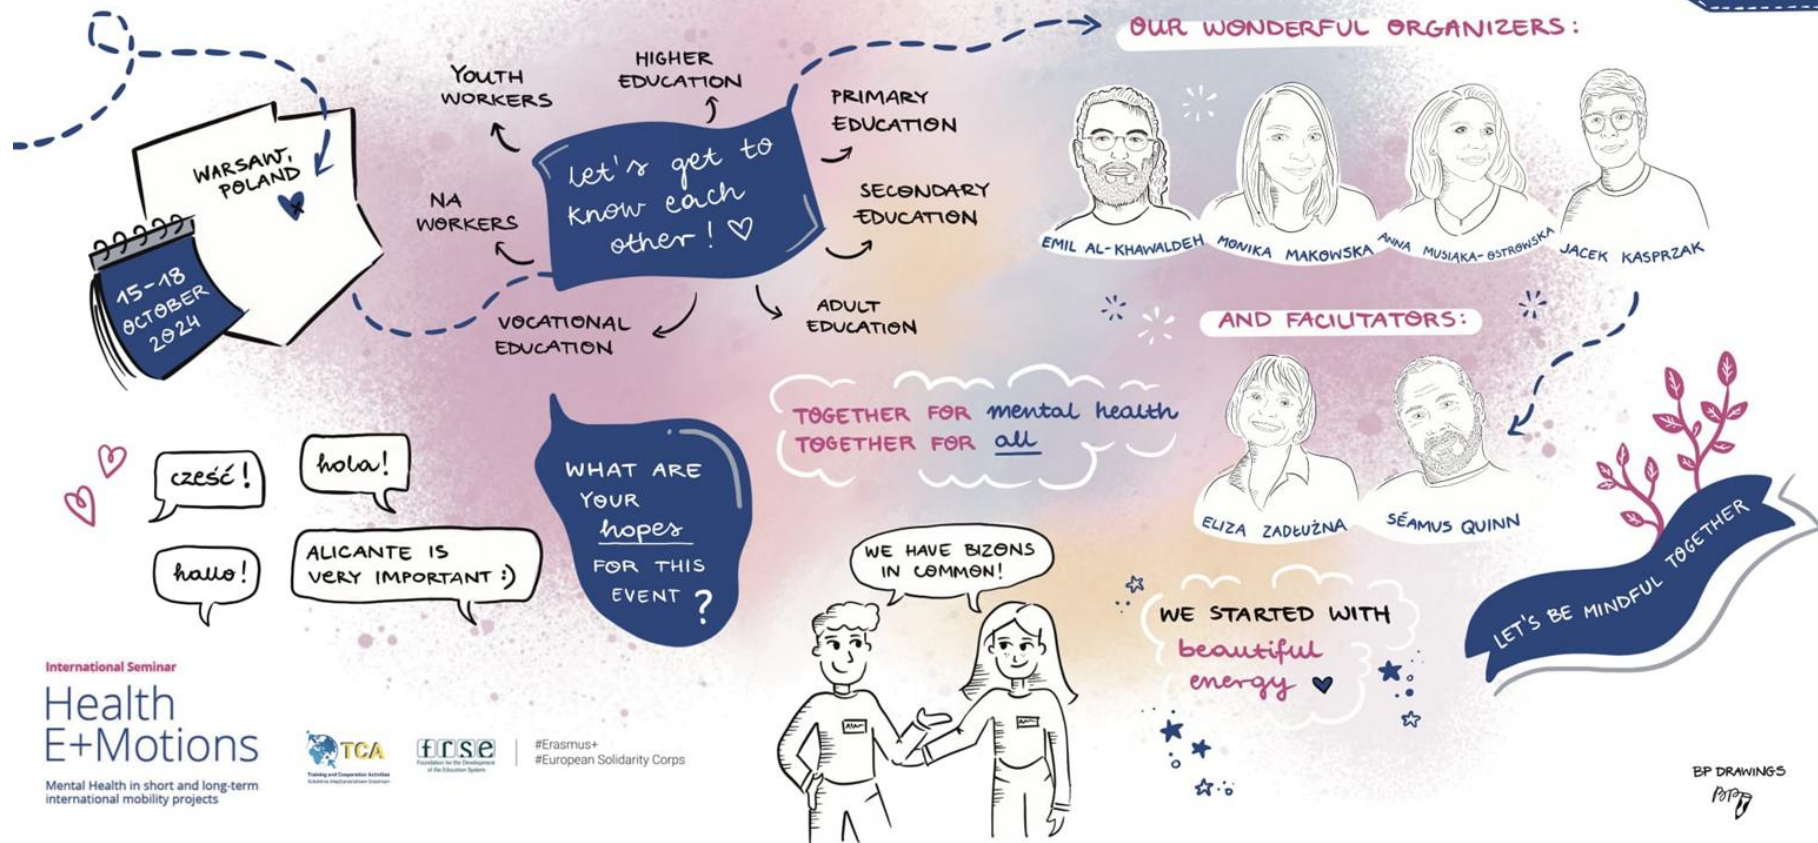 WARSAW,
POLAND
15-18
OCTOBER
2024
YOUTH
WORKERS
HIGHER
EDUCATION
PRIMARY
EDUCATION
NA
WORKERS
let's get to
know each
other!
SECONDARY
EDUCATION
VOCATIONAL
EDUCATION
ADULT
EDUCATION
OUR WONDERFUL ORGANIZERS:
EMIL AL-KHAWALDEH
MONIKA MAKOWSKA
ANNA MUSIĄKA-OSTROWSKA
JACEK KASPRZAK
AND FACILITATORS:
ELIZA ZADŁUŻNA
SÉAMUS QUINN
TOGETHER FOR mental health
TOGETHER FOR all
cześć!
hola!
hallo!
ALICANTE IS
VERY IMPORTANT :)
WHAT ARE
YOUR
hopes
FOR THIS
EVENT?
WE HAVE BIZONS
IN COMMON!
WE STARTED WITH
beautiful
energy
LET'S BE MINDFUL TOGETHER
International Seminar
Health
E+Motions
Mental Health in short and long-term
international mobility projects
TCA
Training and Cooperation Activities
frse
Foundation for the Development
of the Education System
#Erasmus+
#European Solidarity Corps
BP DRAWINGS